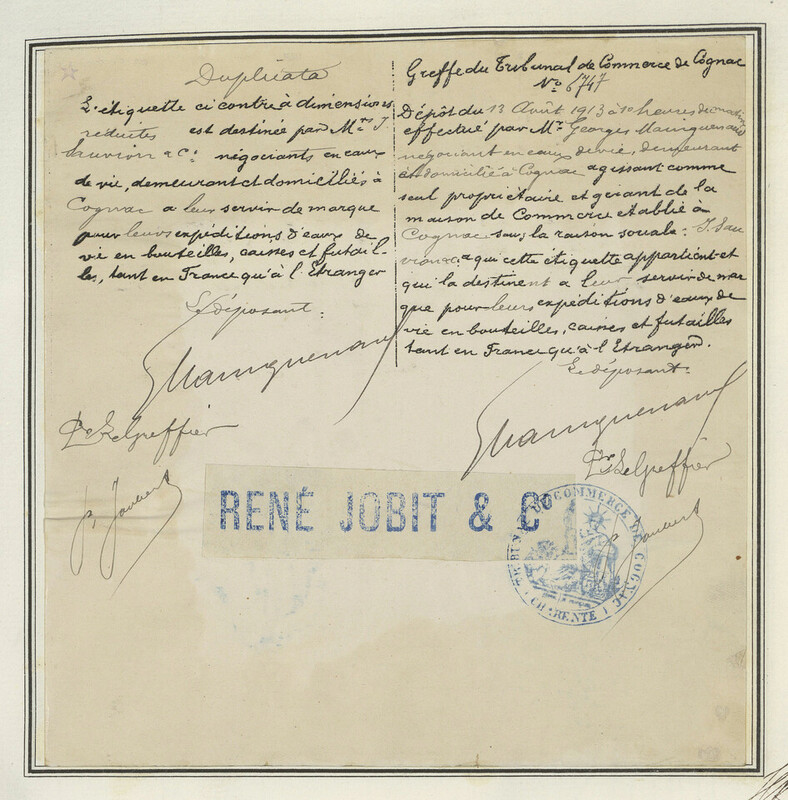 Duplicata
L'étiquette ci contre à dimensions
réduites est destinée par Mrs J.
Sauvion & Cie négociants en eaux
de vie, demeurant et domiciliés à
Cognac a leur servir de marque
pour leurs expéditions d'eaux de
vie en bouteilles, caisses et futail-
les, tant en France qu'à l'Etranger
Le déposant:
GMainguenaud
Pr Le Greffier
P. Joubert
Greffe du Tribunal de Commerce de Cognac
No 6747
Dépôt du 13 Août 1913 à 10 heures du matin
effectué par Mr Georges Mainguenaud
négociant en eaux de vie, demeurant
et domicilié à Cognac agissant comme
seul propriétaire et gérant de la
maison de Commerce établie à
Cognac sous la raison sociale: J. Sau
vion & Cie a qui cette étiquette appartient et
qui la destinent a leur servir de mar
que pour leurs expéditions d'eaux de
vie en bouteilles, caisses et futailles
tant en France qu'à l'Etranger.
Le déposant:
GMainguenaud
Pr Le Greffier
P. Joubert
RENÉ JOBIT & Co
TRIBUNAL DE COMMERCE DE COGNAC
(CHARENTE)